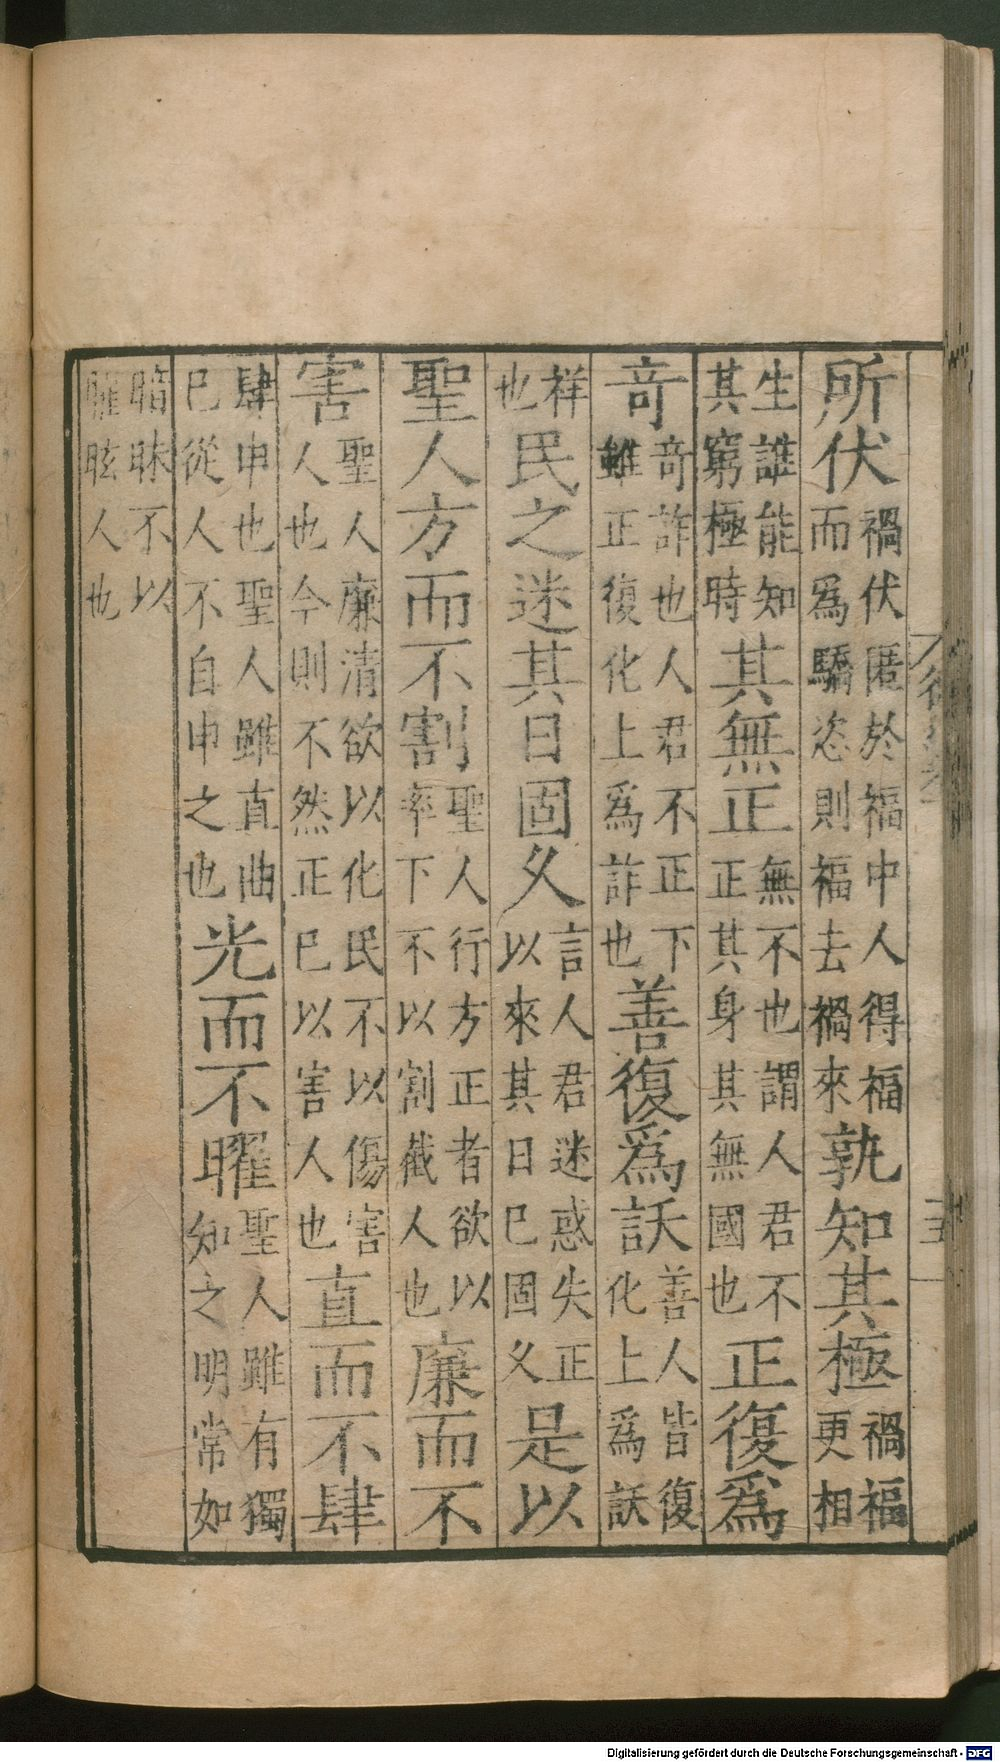 所伏禍伏匿於福中人得福而爲驕恣則福去禍來孰知其極禍福更相
生誰能知其窮極時其無正無不也謂人君不正其身其無國也正復爲
竒竒詐也人君不正下雖正復化上爲詐也善復爲訞善人皆復化上爲訞
祥也民之迷其日固乆言人君迷惑失正以來其日巳固乆是以
聖人方而不割聖人行方正者欲以率下不以割截人也廉而不
害聖人廉清欲以化民不以傷害人也今則不然正巳以害人也直而不肆
肆申也聖人雖直曲巳從人不自申之也光而不曜聖人雖有獨知之明常如
暗昧不以曜眩人也
Digitalisierung gefördert durch die Deutsche Forschungsgemeinschaft - DFG